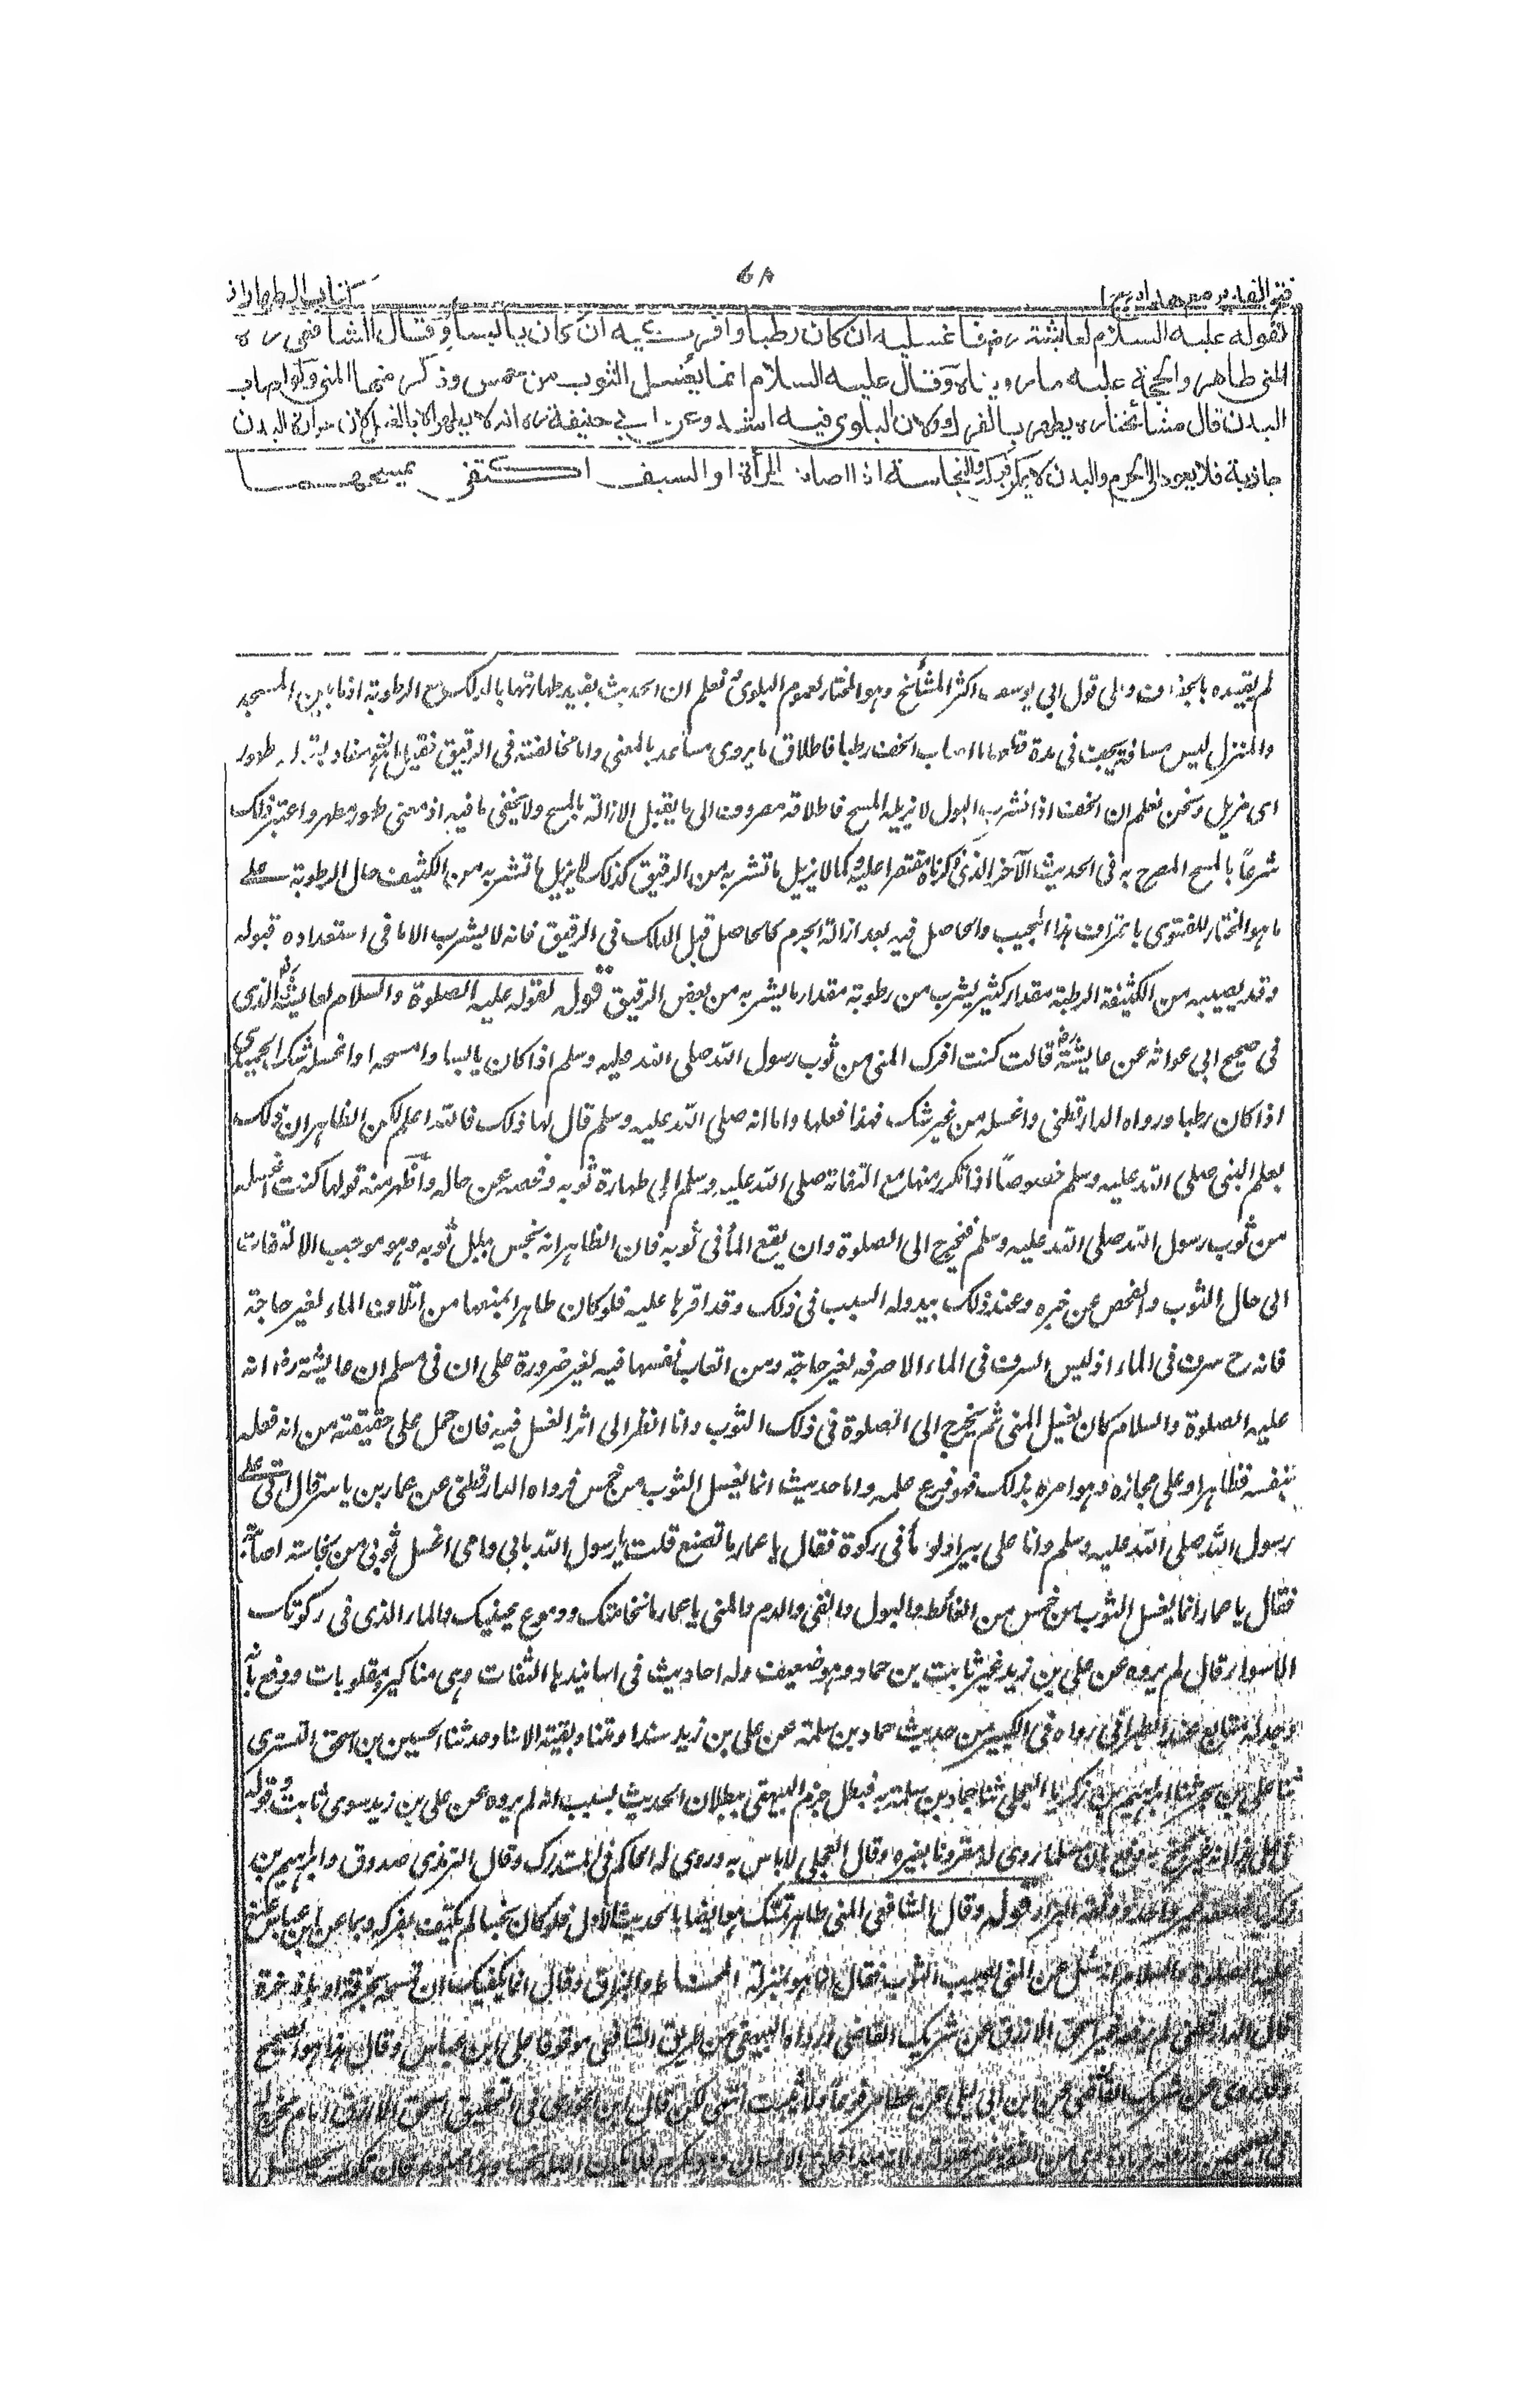 فتح القدير مع هدايه ج ١
٧٨
كتاب الطهارات
لقوله عليه السلام لعائشة رض فاغسليه ان كان رطبا وافركيه ان كان يابسا وقال الشافعى ره
المنى طاهر والحجة عليه ما رويناه وقال عليه السلام انما يغسل الثوب من خمس وذكر منها المنى ولو اصاب
البدن قال مشائخنا ره يطهر بالفرك لان البلوى فيه اشد وعن ابى حنيفة ره انه لا يطهر الا بالغسل لان حرارة البدن
جاذبة فلا يعود الى الجرم والبدن لا يمكن فركه والنجاسة اذا اصابت المرأة او السيف اكتفى بمسحهما
لم يقيده بالجفاف وعلى قول ابى يوسف اكثر المشائخ وهو المختار لعموم البلوى ونعلم ان الحديث يفيد طهارتها بالدلك مع الرطوبة اذ ما بين المسجد
والمنزل ليس مسافة يجف فى مدة قطعها ما اصاب الخف رطبا فاطلاق ما يروى مساعد بالمعنى واما مخالفته فى الرقيق فقيل هو مفاد بقوله طهور
اى مزيل ونحن نعلم ان الخف اذا تشرب البول لا يزيله المسح فاطلاقه مصروف الى ما يقبل الازالة بالمسح ولا يخفى ما فيه اذ معنى طهور مطهر واعتبر ذلك
شرعاً بالمسح المصرح به فى الحديث الآخر الذى ذكرناه مقتصرا عليه وكما لا يزيل ما تشربه من الرقيق كذلك لا يزيل ما تشربه من الكثيف حال الرطوبة على
ما هو المختار للفتوى باعتراف هذا المجيب والحاصل فيه بعد ازالة الجرم كالحاصل قبل الدلك فى الرقيق فانه لا يشرب الا ما فى استعداده قبوله
وقد يصيبه من الكثيفة الرطبة مقدار كثير يشرب من رطوبته مقدار ما يشربه من بعض الرقيق قوله لقوله عليه الصلوة والسلام لعايشة رض الذى
فى صحيح ابى عوانة عن عايشة رض قالت كنت افرك المنى من ثوب رسول الله صلى الله عليه وسلم اذا كان يابسا وامسحه او اغسله شك الحميدى
اذا كان رطبا ورواه الدارقطنى واغسله من غير شك فهذا فعلها واما انه صلى الله عليه وسلم قال لها ذلك فالله اعلم لكن الظاهر ان ذلك
بعلم النبى صلى الله عليه وسلم خصوصاً اذا تكرر منها مع التفاته صلى الله عليه وسلم الى طهارة ثوبه وفحصه عن حاله واظهر منه قولها كنت اغسله
من ثوب رسول الله صلى الله عليه وسلم فيخرج الى الصلوة وان بقع الماء فى ثوبه فان الظاهر انه يحس ببلل ثوبه وهو موجب الالتفات
الى حال الثوب والفحص عن خبره وعند ذلك يبدو له السبب فى ذلك وقد اقرها عليه فلو كان طاهرا لمنعها من اتلاف الماء لغير حاجة
فانه ح سرف فى الماء اذ ليس السرف فى الماء الا صرفه لغير حاجة ومن اتعاب نفسها فيه لغير ضرورة على ان فى مسلم ان عايشة رض انه
عليه الصلوة والسلام كان يغسل المنى ثم يخرج الى الصلوة فى ذلك الثوب وانا انظر الى اثر الغسل فيه فان حمل على حقيقته من انه فعله
بنفسه فظاهر او على مجازه وهو امره بذلك فهو فرع علمه واما حديث انما يغسل الثوب من خمس فرواه الدارقطنى عن عمار بن ياسر قال اتى على
رسول الله صلى الله عليه وسلم وانا على بير ادلو ماء فى ركوة فقال يا عمار ما تصنع قلت يا رسول الله بابى وامى اغسل ثوبى من نجاسة اصابته
فقال يا عمار انما يغسل الثوب من خمس من الغائط والبول والقى والدم والمنى يا عمار ما نخامتك ودموع عينيك والماء الذى فى ركوتك
الا سواء قال لم يروه عن على بن زيد غير ثابت بن حماد وهو ضعيف وله احاديث فى اسانيدها الثقات وهى مناكير ومقلوبات ودفع بانه
وجد له متابع عند الطبرانى رواه فى الكبير من حديث حماد بن سلمة عن على بن زيد سندا ومتنا وبقية الاسناد حدثنا الحسين بن اسحق التسترى
ثنا على بن بحر ثنا ابراهيم بن زكريا العجلى ثنا حماد بن سلمة به فبطل جزم البيهقى ببطلان الحديث بسبب انه لم يروه عن على بن زيد سوى ثابت وقوله
فى على هذا انه غير محتج به دفع بان مسلما روى له مقرونا بغيره وقال العجلى لا باس به وروى له الحاكم فى المستدرك وقال الترمذى صدوق وابراهيم بن
زكريا ضعفه غير واحد ووثقه البزار قوله وقال الشافعى المنى طاهر تمسك هو ايضا بالحديث الاول فلو كان نجسا لم يكتف بفركه وبما عن ابن عباس عنه
عليه الصلوة والسلام انه سئل عن المنى يصيب الثوب فقال انما هو بمنزلة المخاط والبزاق وقال انما يكفيك ان تمسحه بخرقة او باذخرة
قال الدارقطنى لم يرفعه غير اسحق الازرق عن شريك القاضى ورواه البيهقى من طريق الشافعى موقوفا على ابن عباس وقال هذا هو الصحيح
وقد روى عن شريك القاضى عن ابن ابى ليلى عن عطا مرفوعاً ولا يثبت انتهى لكن قال ابن الجوزى فى التحقيق اسحق الازرق امام مخرج له
فى الصحيحين ورفعه زيادة وهى من الثقة مقبولة ولانه مبدا خلق الانسان